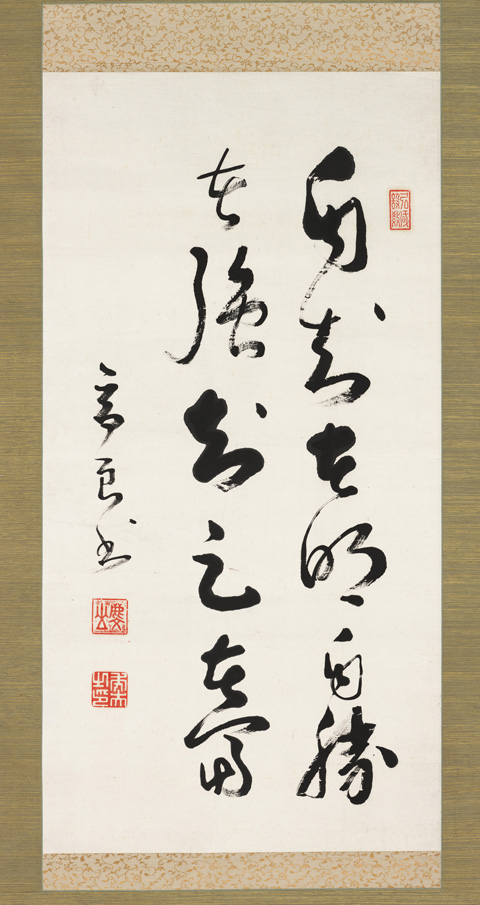 自知者明自勝
者強知足者富
書